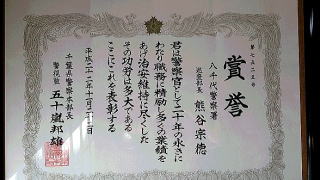 賞誉
八千代警察署
巡査部長 熊谷宗徳
君は警察官として二十年の永きに
わたり職務に精励し多くの業績を
あげ治安維持に尽くした
その功労は多大である
ここにこれを表彰する
平成二十二年十一月二十二日
千葉県警察本部長
警視監 五十嵐邦雄